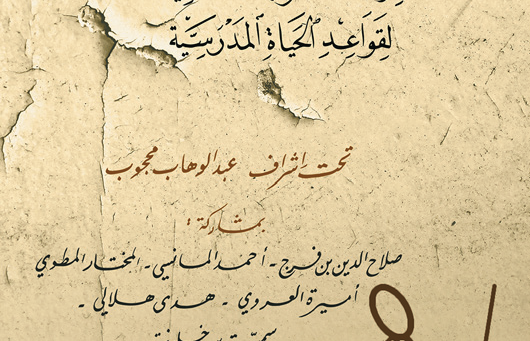 لِقَوَاعِدِ الحَيَاةِ المَدْرَسِيَّةِ
تحت إشراف عبد الوهاب محجوب
بمشاركة :
صلاح الدين بن فرج - أحمد المانسي - المختار المطوي
أميرة العروي - هدى هلالي -
سميّة بن